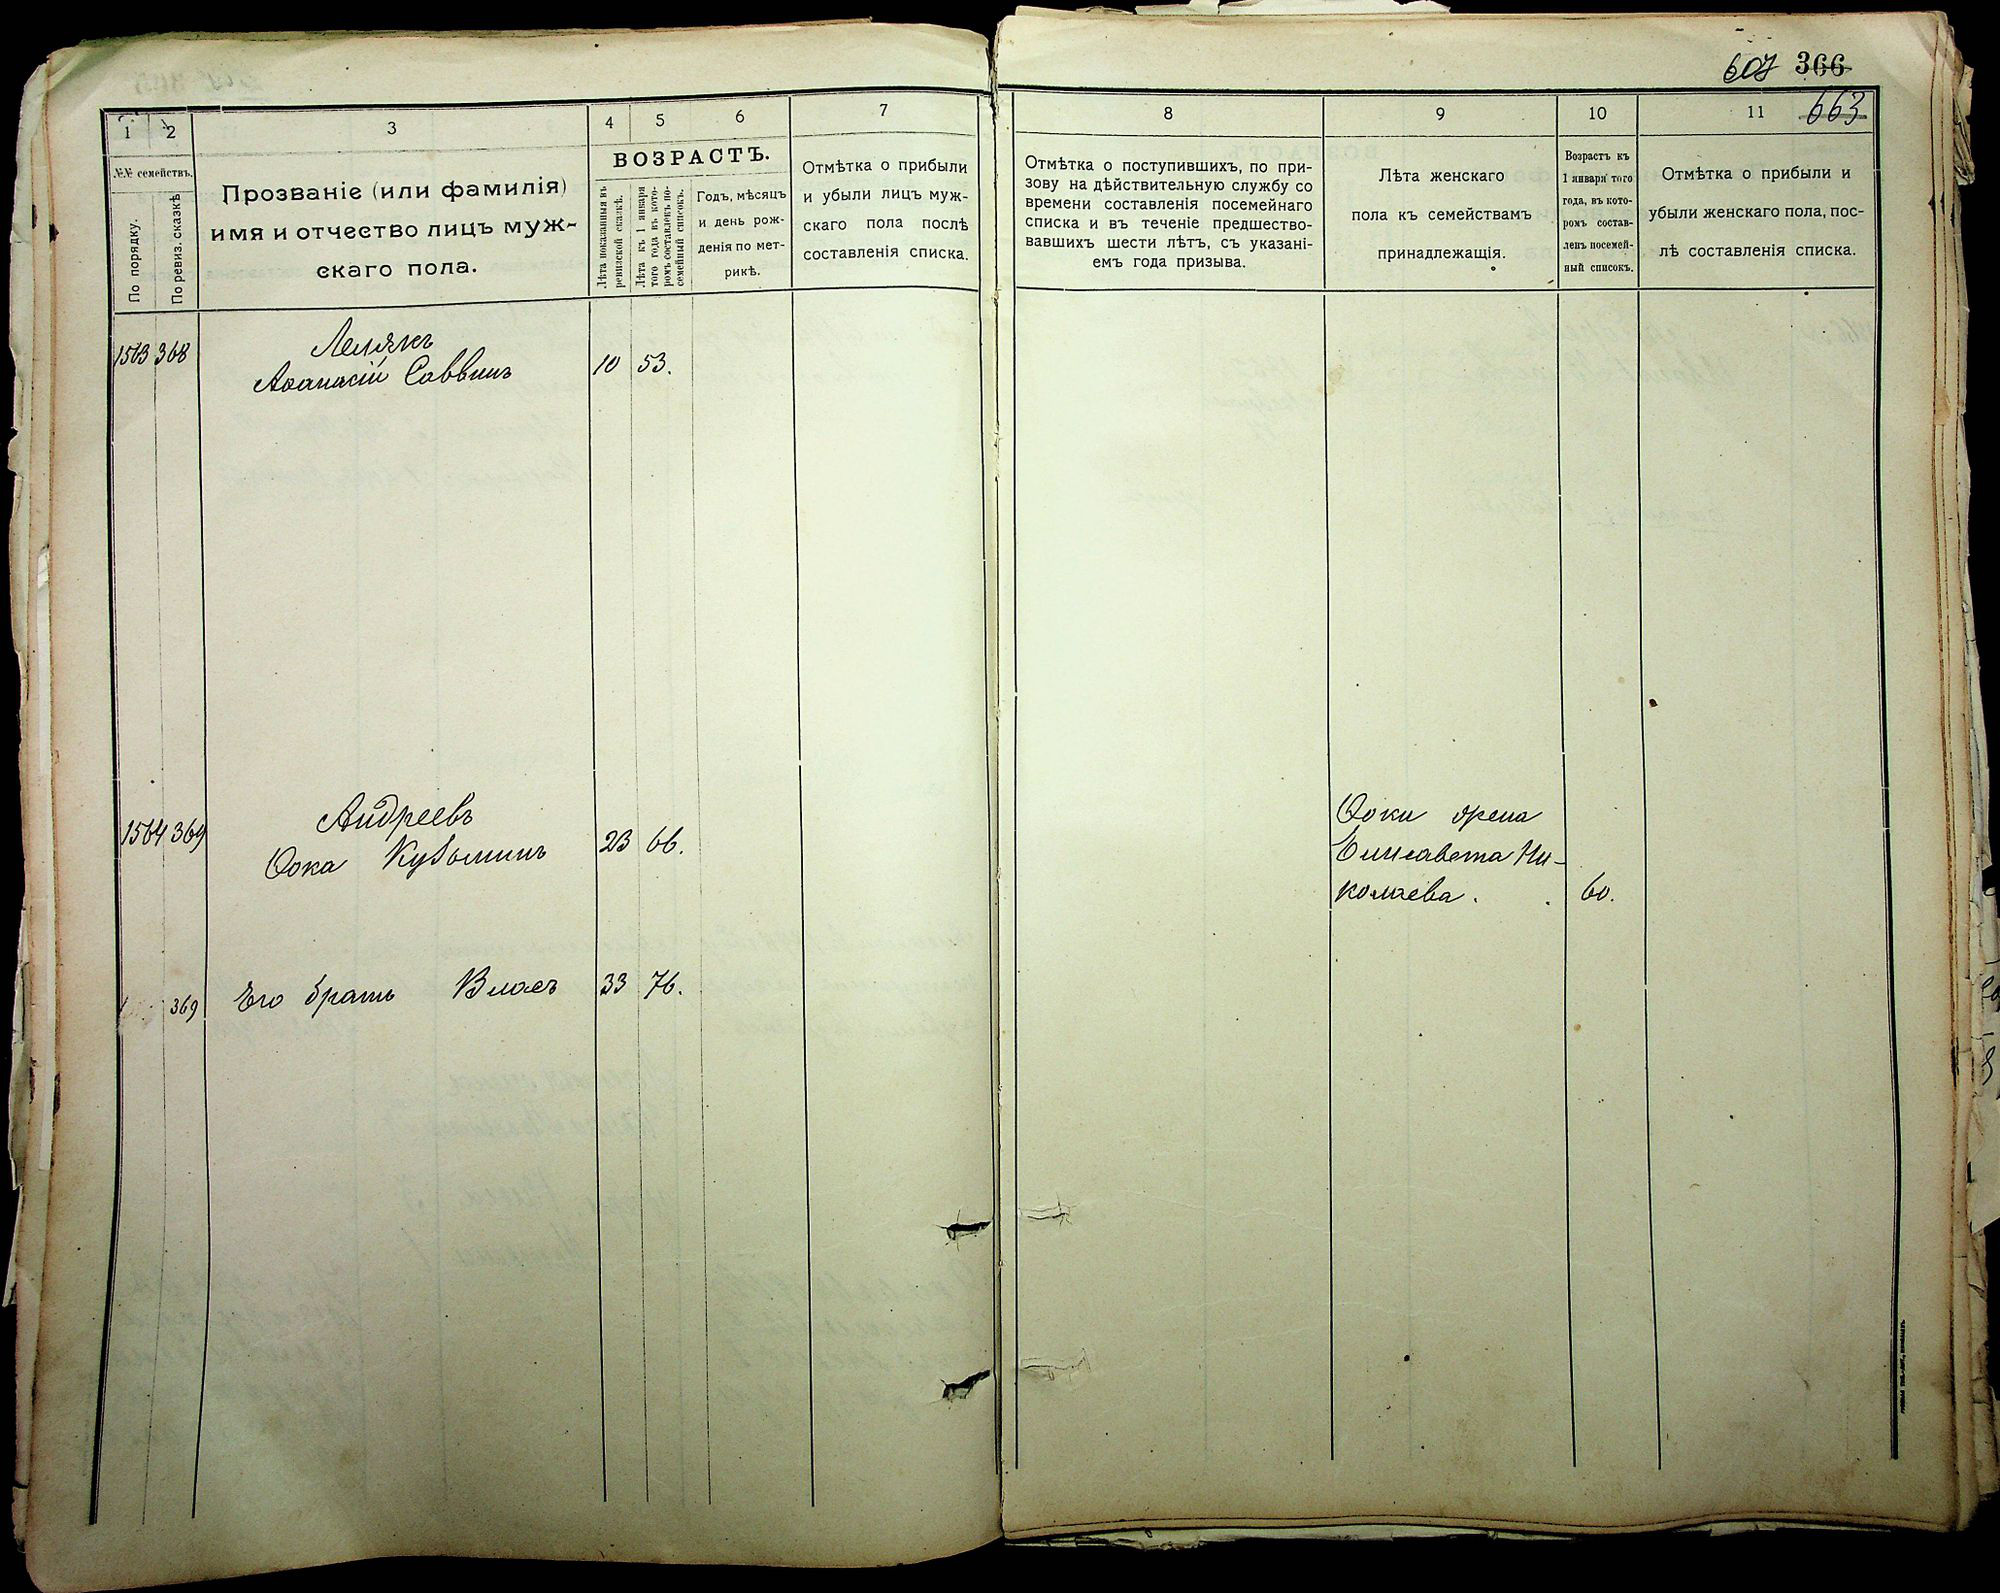 607 366
663
1
2
3
4
5
6
7
8
9
10
11
№№ семействъ.
По порядку.
По ревиз. сказкѣ
Прозваніе (или фамилія)
имя и отчество лицъ муж-
скаго пола.
ВОЗРАСТЪ.
Лѣта показанныя въ
ревизской сказкѣ.
Лѣта къ 1 января
того года въ кото-
ромъ составленъ по-
семейный списокъ.
Годъ, мѣсяцъ
и день рож-
денія по мет-
рикѣ.
Отмѣтка о прибыли
и убыли лицъ муж-
скаго пола послѣ
составленія списка.
Отмѣтка о поступившихъ, по при-
зову на дѣйствительную службу со
времени составленія посемейнаго
списка и въ теченіе предшество-
вавшихъ шести лѣтъ, съ указані-
емъ года призыва.
Лѣта женскаго
пола къ семействамъ
принадлежащія.
Возрастъ къ
1 января того
года, въ кото-
ромъ состав-
ленъ посемей-
ный списокъ.
Отмѣтка о прибыли и
убыли женскаго пола, пос-
лѣ составленія списка.
1563 368
Лелякъ
Аѳанасій Саввинъ 10 53.
1564 369
Андреевъ
Ѳока Кузьминъ 23 66.
Ѳоки жена
Елисавета Ни-
колаева. 60.
369 Его братъ Власъ 33 76.